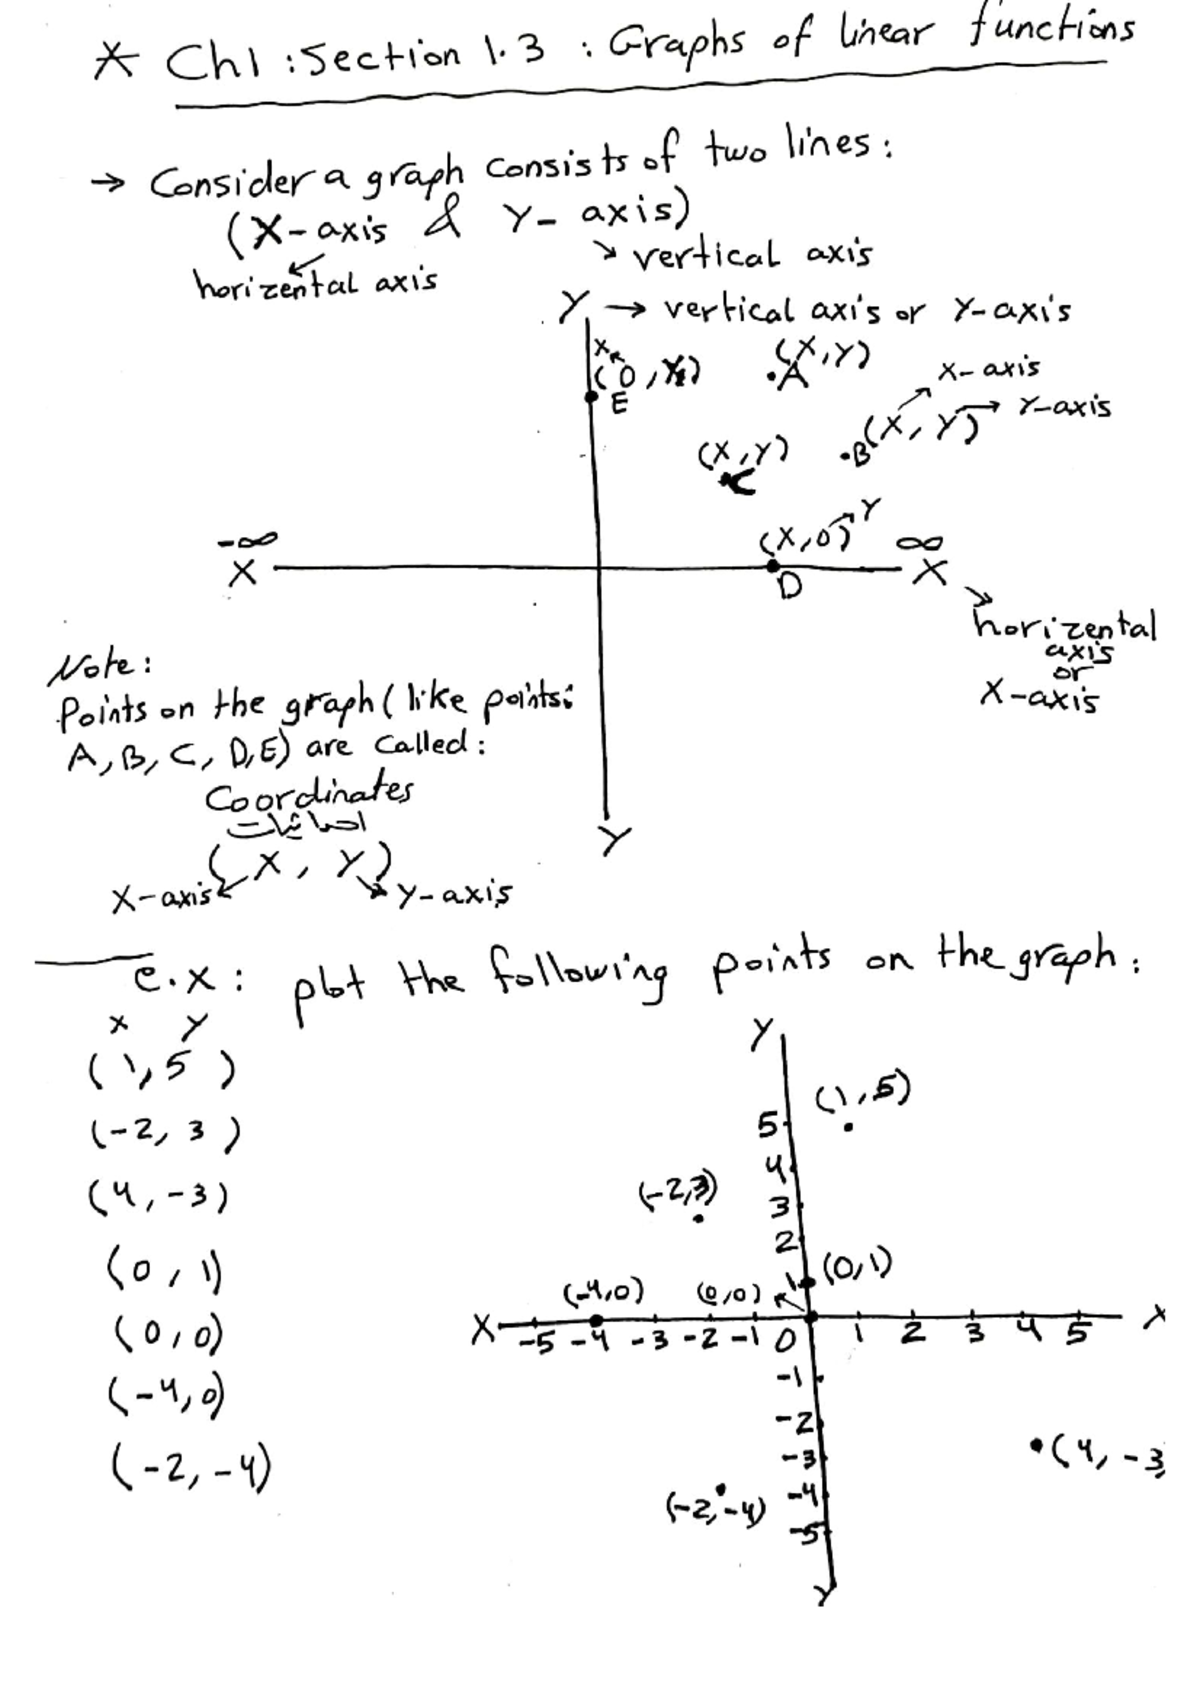 * Ch1 : Section 1.3 : Graphs of linear functions
→ Consider a graph consists of two lines :
(X-axis & Y-axis)
↘ vertical axis
horizental axis
Y → vertical axis or Y-axis
X
(0, Y)
E
(X,Y)
.A
X-axis
(X, Y) → Y-axis
.B
(X,Y)
C
Y
(X,0)
D
-∞
X
∞
X
horizental
axis
or
X-axis
Y
Note :
Points on the graph ( like points :
A, B, C, D, E) are called :
Coordinates
احداثيات
( X , Y )
X-axis
Y-axis
e.x : plot the following points on the graph :
x y
( 1, 5 )
(-2, 3 )
(4, -3)
(0, 1)
(0, 0)
(-4, 0)
(-2, -4)
Y
(1, 5)
5
4
(-2,3)
3
2
1
(0,1)
(-4,0)
(0,0)
X
-5 -4 -3 -2 -1 0 1 2 3 4 5
X
-1
-2
-3
(4, -3
-4
(-2,-4)
-5
Y